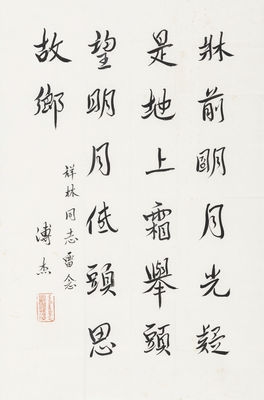 牀前明月光疑
是地上霜舉頭
望明月低頭思
故鄉
祥林同志留念
溥杰